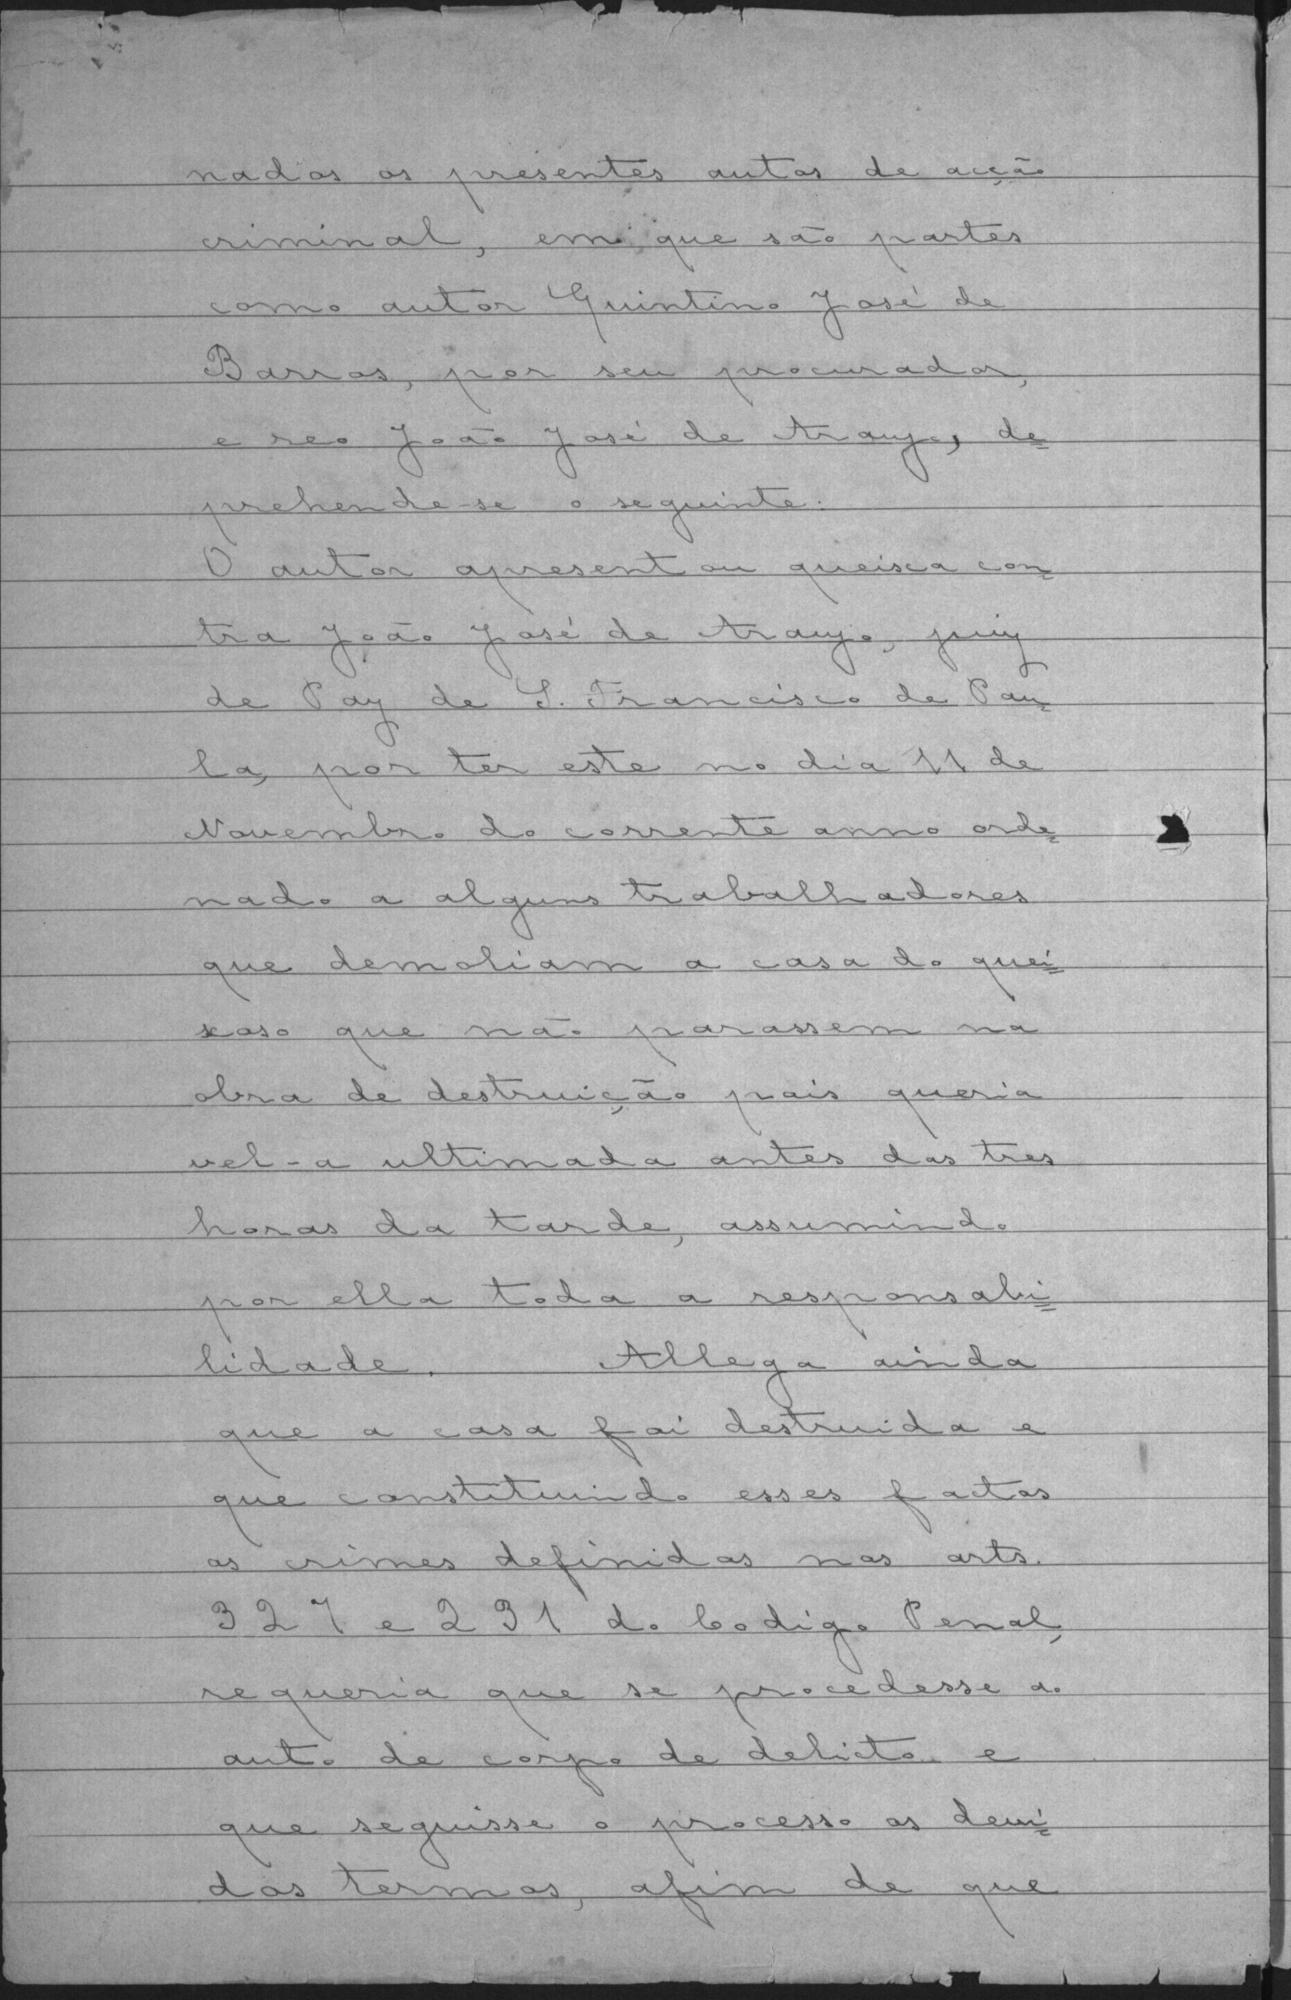 nados os presentes autos de acção
criminal, em que são partes
como autor Quintino José de
Barros, por seu procurador,
e reo João José de Araujo, de=
prehende-se o seguinte:
O autor apresentou queixa con=
tra João José de Araujo, juiz
de Paz de S. Francisco de Pau=
la, por ter este no dia 11 de
Novembro do corrente anno orde=
nado a alguns trabalhadores
que demoliam a casa do quei=
xoso que não parassem na
obra de destruição pois queria
vel-a ultimada antes das tres
horas da tarde, assumindo
por ella toda a responsabi=
lidade. Allega ainda
que a casa foi destruida e
que constituindo esses factos
os crimes definidos nos arts.
327 e 231 do Codigo Penal,
requeria que se procedesse ao
auto de corpo de delicto e
que seguisse o processo os devi=
dos termos, afim de que